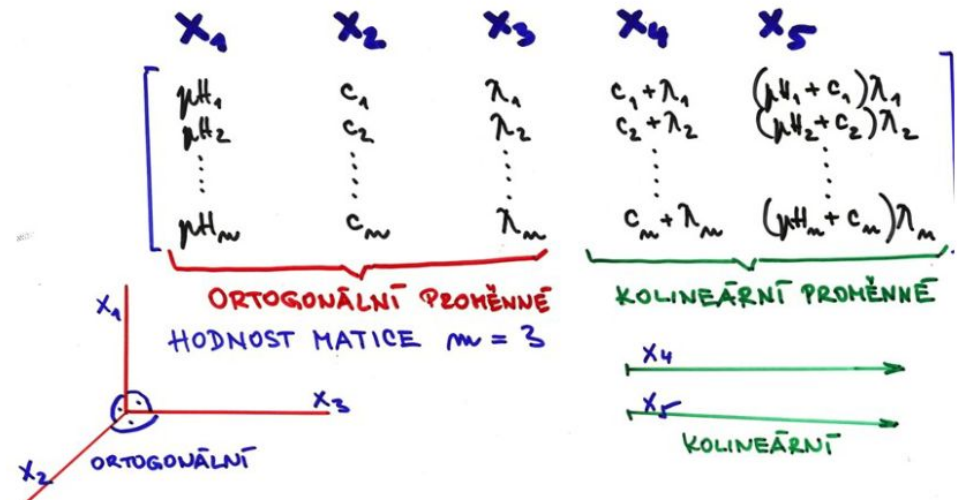 x₁ x₂ x₃ x₄ x₅
pH₁ c₁ λ₁ c₁+λ₁ (pH₁+c₁)λ₁
pH₂ c₂ λ₂ c₂+λ₂ (pH₂+c₂)λ₂
pHₙ cₙ λₙ cₙ+λₙ (pHₙ+cₙ)λₙ
ORTOGONÁLNÍ PROMĚNNÉ KOLINEÁRNÍ PROMĚNNÉ
HODNOST MATICE m = 3
x₁
x₄
x₃ x₅
KOLINEÁRNÍ
ORTOGONÁLNÍ
x₂